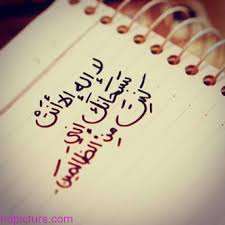 لا إِلَهَ إِلا أَنْتَ
سُبْحَانَكَ إِنِّي
كُنْتُ مِنَ الظَّالِمِينَ
Hdpicture.com